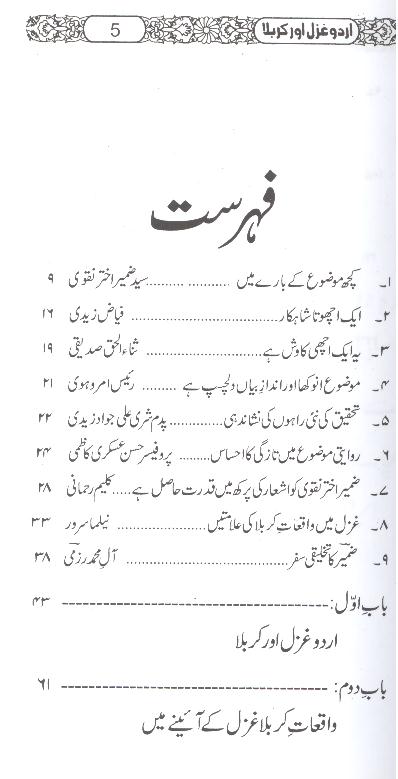 اردو غزل اور کربلا 5
فہرست
۱۔ کچھ موضوع کے بارے میں ........... سید ضمیر اختر نقوی ۹
۲۔ ایک اچھوتا شاہکار ........... فیاض زیدی ۱۶
۳۔ یہ ایک اچھی کاوش ہے ........... ثناء الحق صدیقی ۱۹
۴۔ موضوع انوکھا اور اندازِ بیاں دلچسپ ہے ......... رئیس امروہوی ۲۱
۵۔ تحقیق کی نئی راہوں کی نشاندہی ........ پدم شری علی جواد زیدی ۲۲
۶۔ روایتی موضوع میں تازگی کا احساس ........ پروفیسر حسن عسکری کاظمی ۲۴
۷۔ ضمیر اختر نقوی کو اشعار کی پرکھ میں قدرت حاصل ہے ..... کلیم رحمانی ۲۸
۸۔ غزل میں واقعاتِ کربلا کی علامتیں ........... نیلما سرور ۳۳
۹۔ ضمیر کا تخلیقی سفر ........... آلِ محمد رزمی ۳۸
بابِ اوّل: ---------------------------- ۴۳
اردو غزل اور کربلا
بابِ دوم: ---------------------------- ۶۱
واقعاتِ کربلا غزل کے آئینے میں